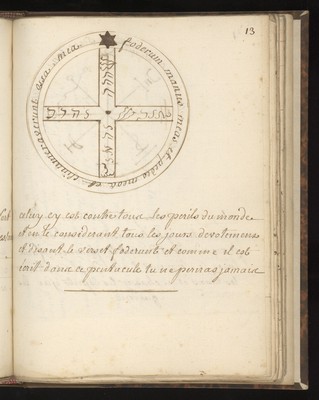 13
foderunt manus meas et pedes meos et dinumeraverunt ossa mea
celuy cy est contre tous les perils du monde
et en le considerant tous les jours devotement
et disant le verset foderunt et comme il est
écrit dans ce pentacule tu ne periras jamais